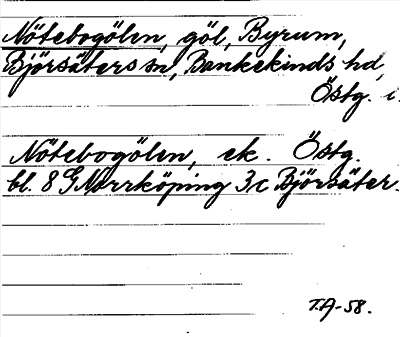 Nötebogölen, göl, Byrum,
Björsäters sn, Bankekinds hd,
Östg. l.
Nötebogölen, ek. Östg.
bl. 8 G Norrköping 3c Björsäter.
T.A-58.